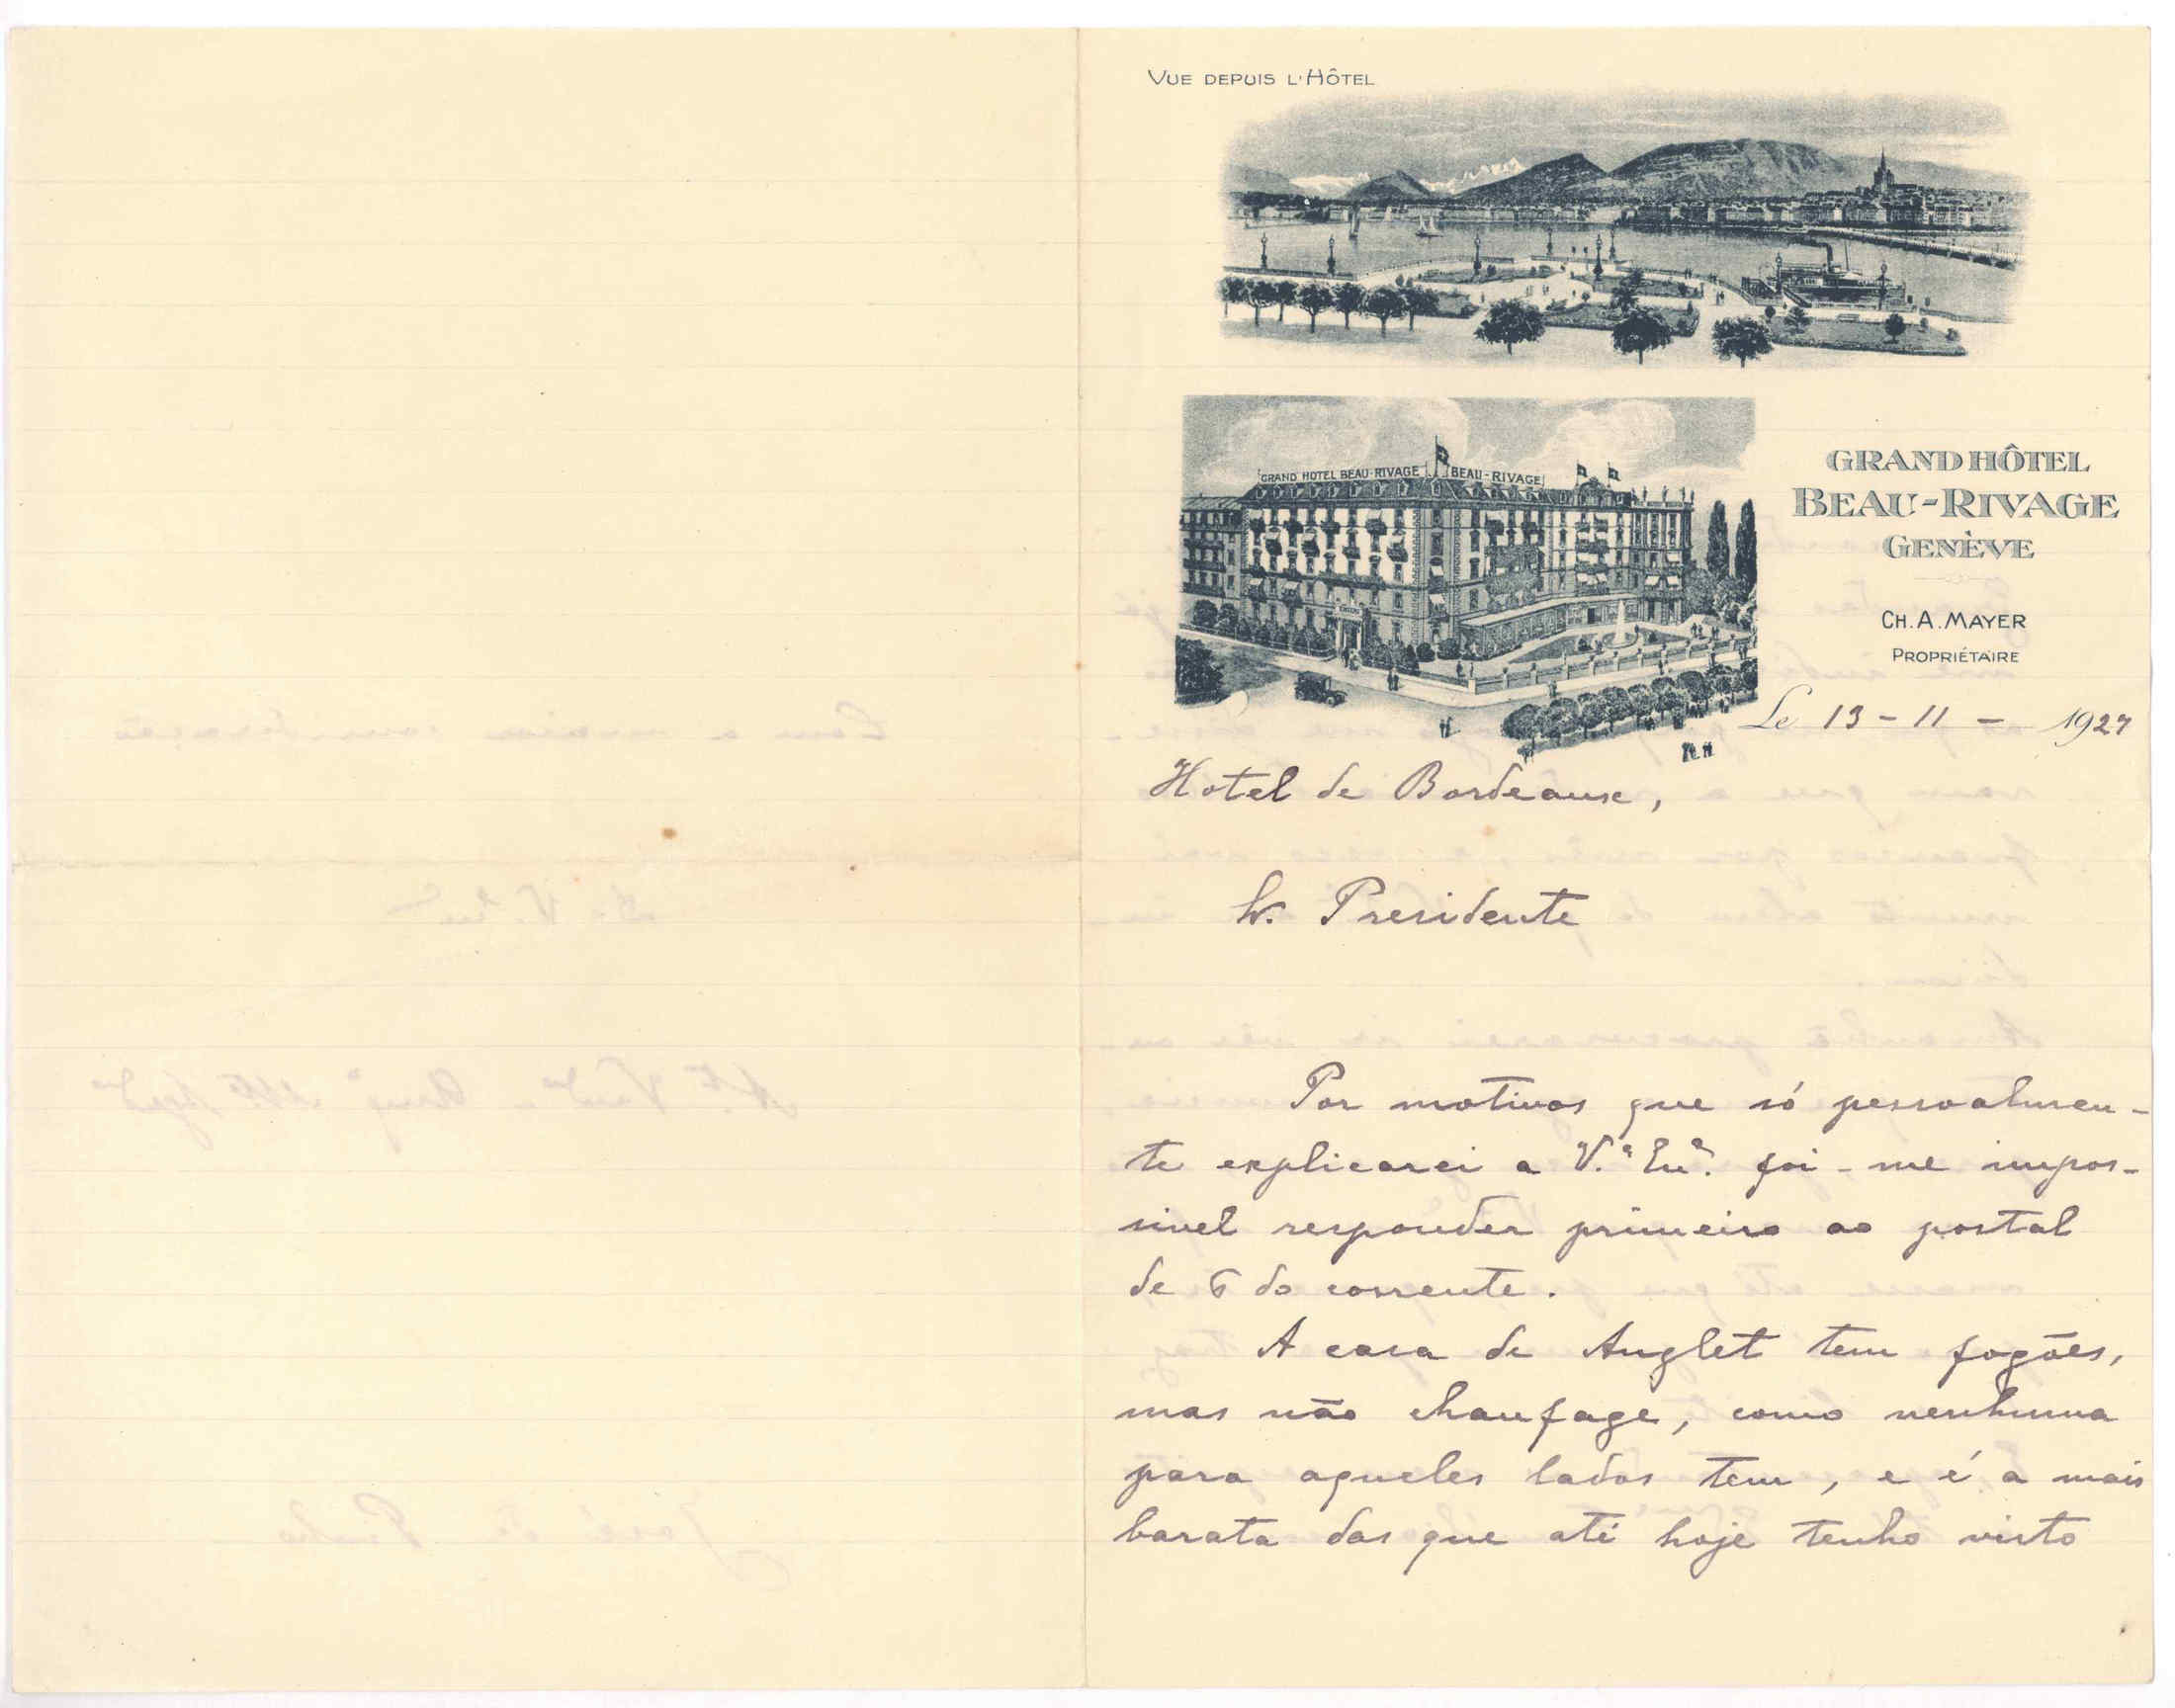 VUE DEPUIS L'HÔTEL
GRAND HOTEL BEAU-RIVAGE BEAU-RIVAGE
GRAND HÔTEL
BEAU-RIVAGE
GENÈVE
CH. A. MAYER
PROPRIÉTAIRE
Le 13-11-1927
Hotel de Bordeaux,
Sr. Presidente
Por motivos que só pessoalmen-
te explicarei a V.ª Ex.ª foi-me impos-
sivel responder primeiro ao postal
de 6 do corrente.
A casa de Anglet tem fogões,
mas não chaufage, como nenhuma
para aqueles lados tem, e é a mais
barata das que até hoje tenho visto